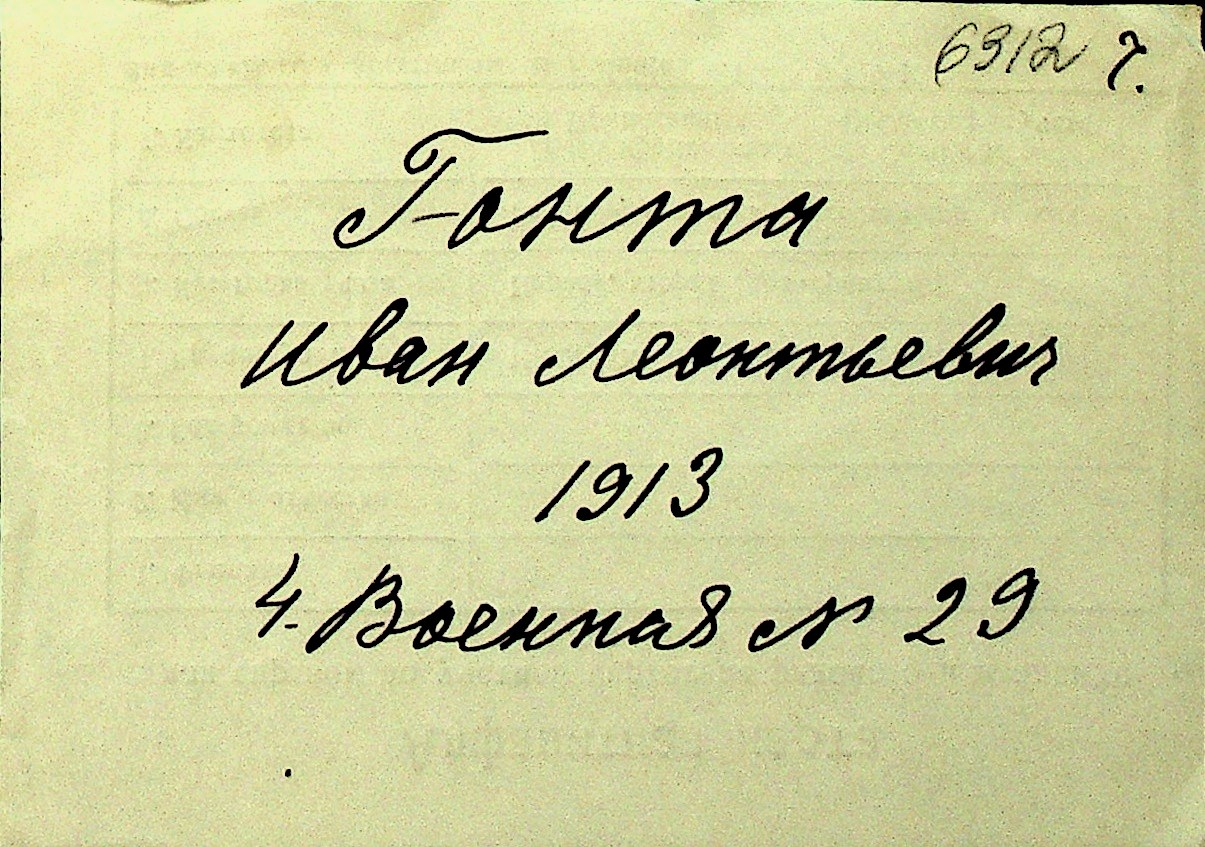 6312 г.
Гонта
Иван Леонтьевич
1913
4-Военная № 29